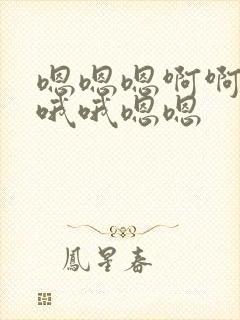 嗯嗯嗯啊啊
哦哦嗯嗯
鳳星春